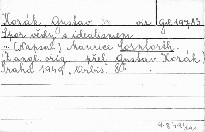 Korák, Gustav
Spor vědy s idealismem
(Napsal) Maurice Cornforth
(Z angl. orig. přel. Gustav Korák)
Praha 1949, Orbis. 8°